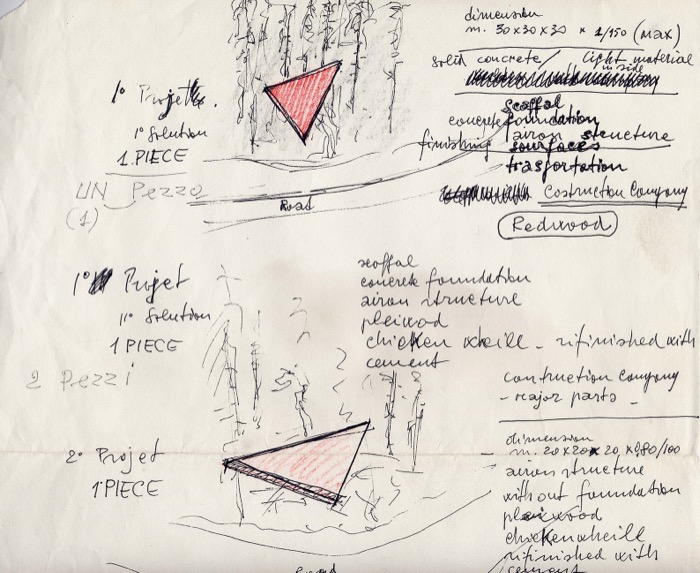 dimension
m. 30x30x30 x 1/150 (max)
solid concrete / light material
in side
1° Projet
1° Solution
1. PIECE
UN Pezzo
(1)
scoffal
concrete foundation
airon structure
finishing sourfaces
trasportation
Costruction Company
Redwood
Road
1° Projet
11° Solution
1 PIECE
2 Pezzi
scoffal
concrete foundation
airon structure
pleiwod
chicken wheill - rifinished with
cement
contruction Company
- major parts -
2° Projet
1 PIECE
dimension
m. 20x20x20 x 080/100
airon structure
without foundation
pleiwood
chickenwheill
rifinished with
cement
Road